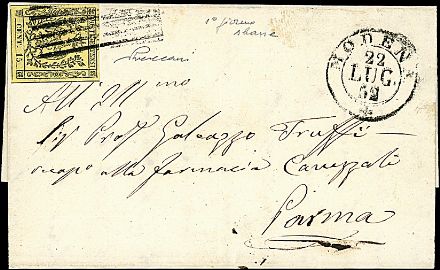 CENT. 15
1° giorno
sbarre
MODENA
22
LUG.
52
All' Ill mo
Sig Prof Galeazzo Truffi
alla farmacia
Parma